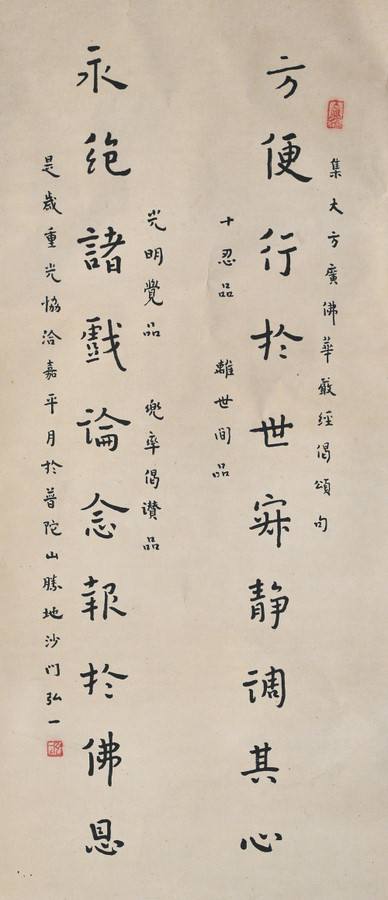 集大方廣佛華嚴經偈頌句
方便行於世寂靜調其心
十忍品 離世間品
光明覺品 兜率偈讚品
永絕諸戲論念報於佛恩
是歲重光協洽嘉平月於普陀山勝地沙门弘一